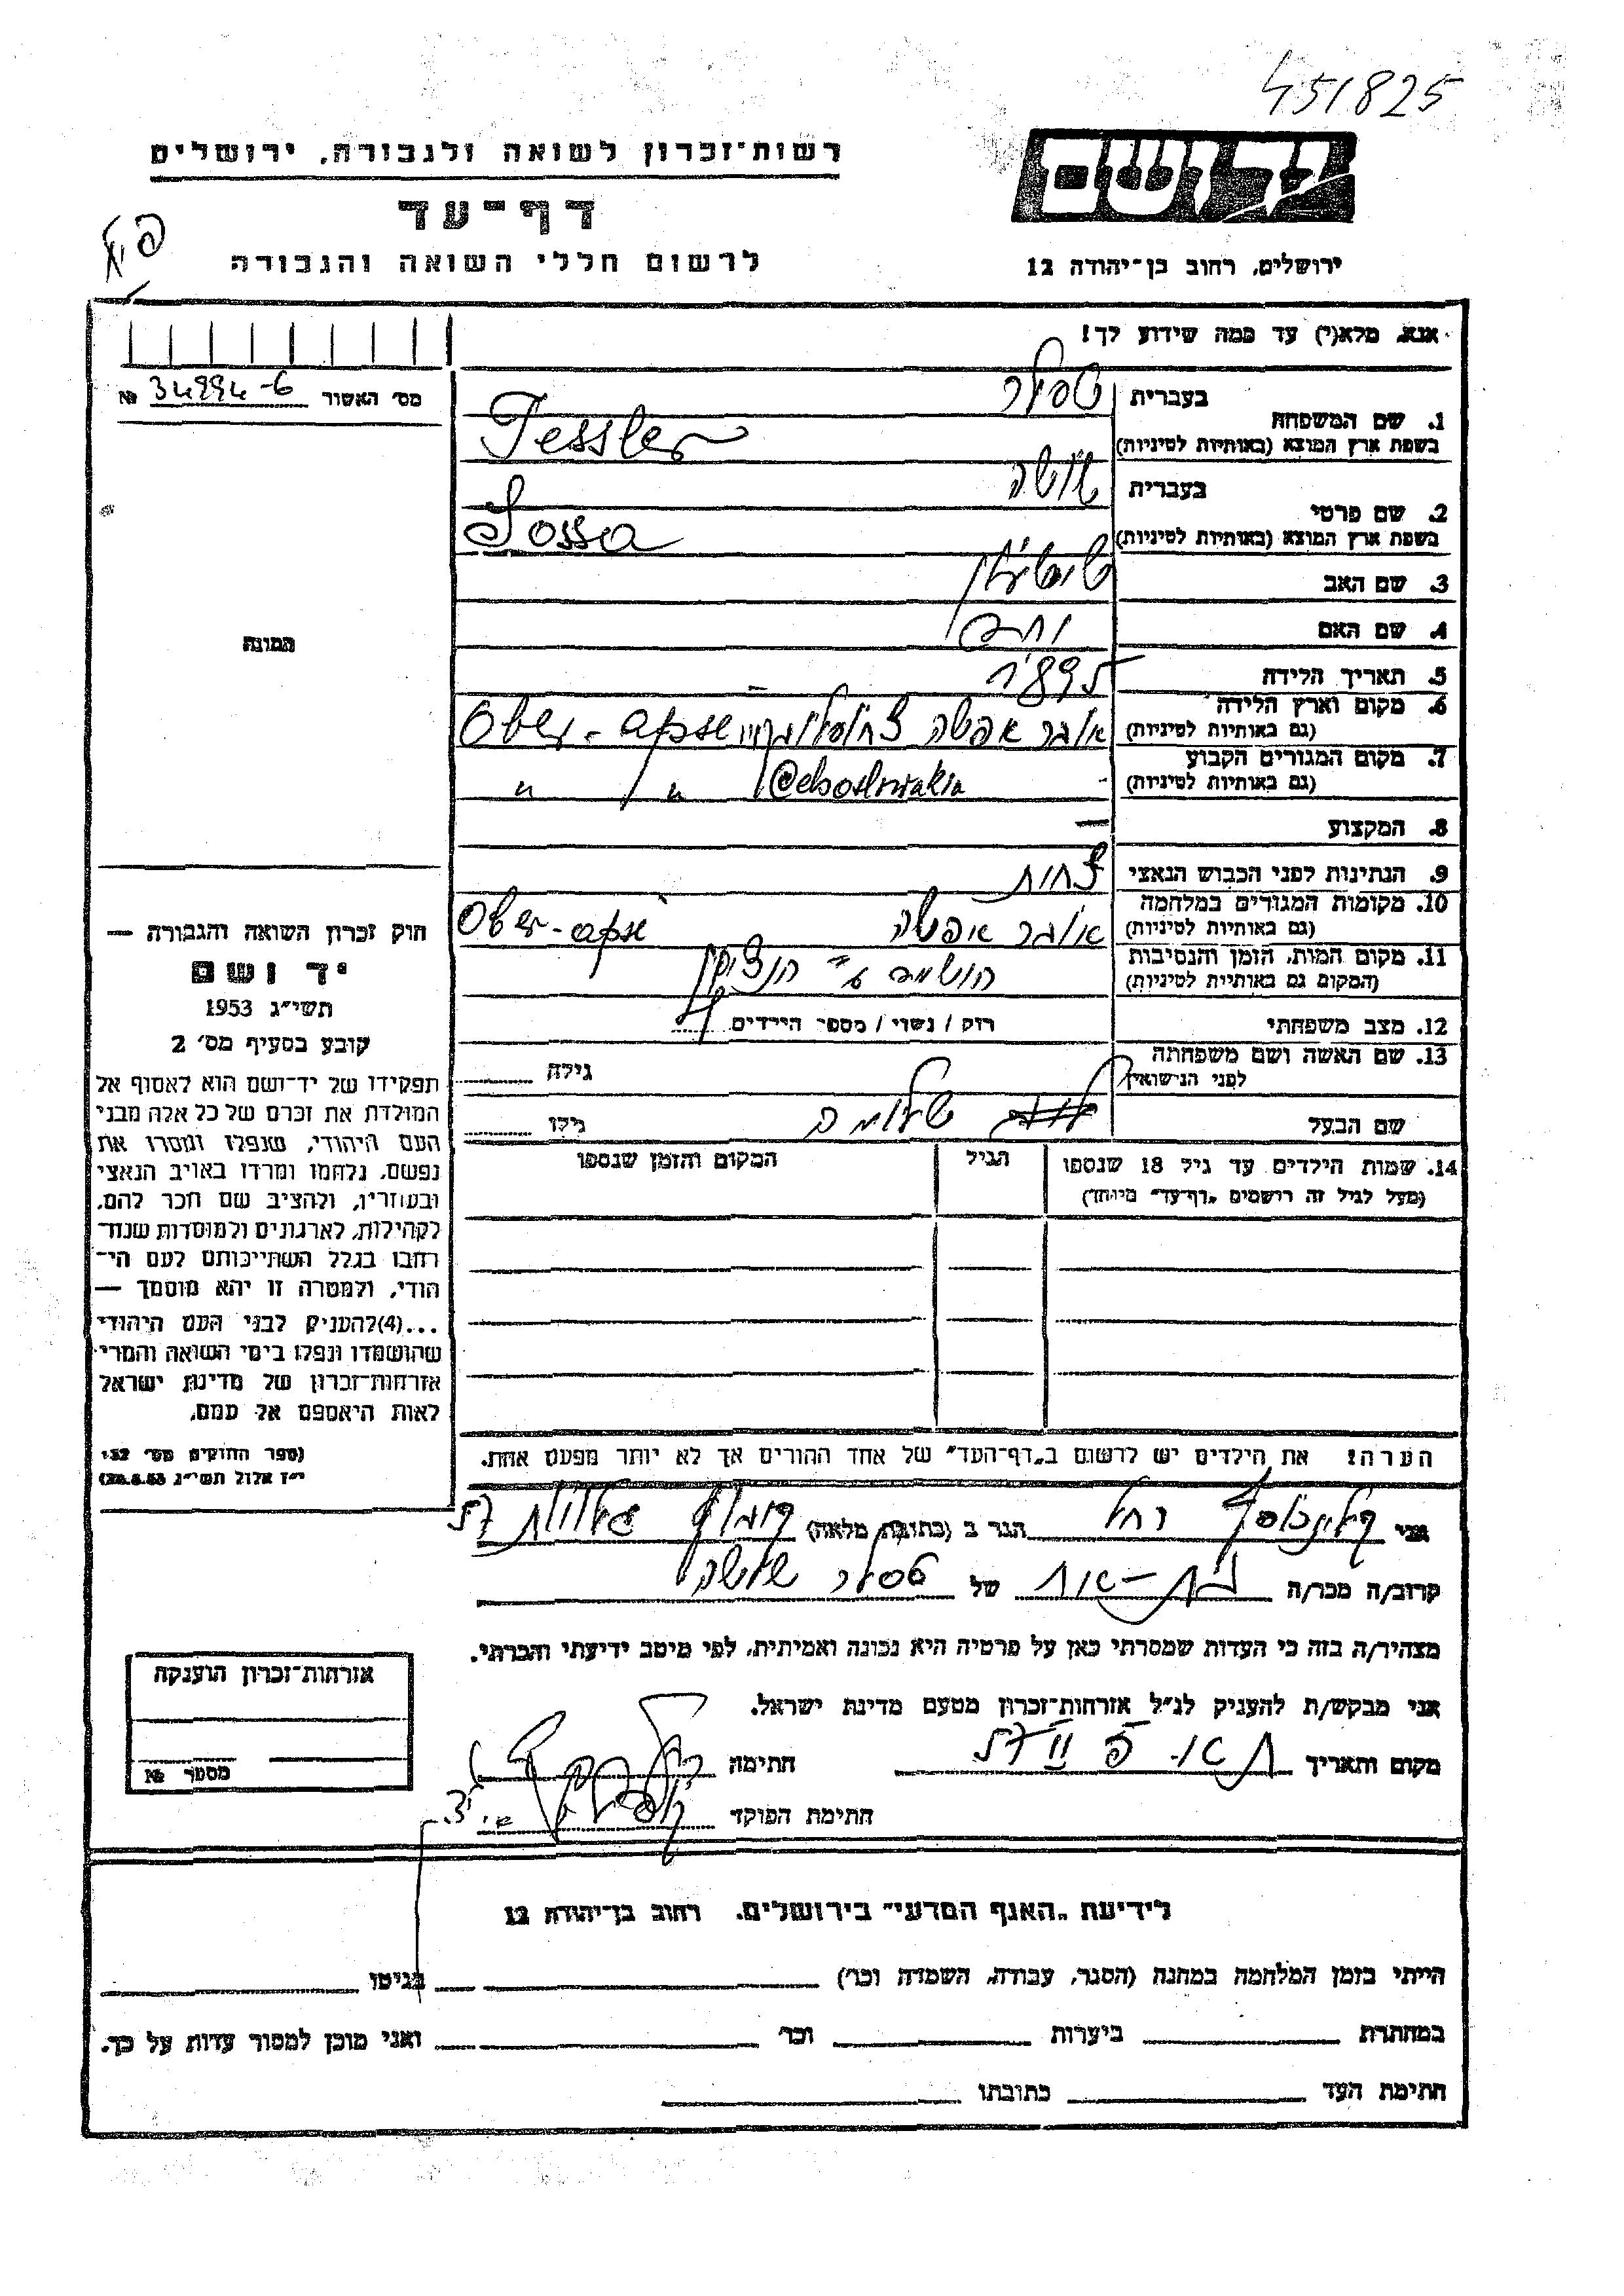 451825
רשות־זכרון לשואה ולגבורה, ירושלים
דף־עד
לרשום חללי השואה והגבורה
ידושם
ירושלים, רחוב בן־יהודה 12
אנא, מלא(י) עד כמה שידוע לך!
מס׳ האשור 34994-6 №
1. שם המשפחה
בעברית טסלר
בשפת ארץ המוצא (באותיות לטיניות) Tessler
2. שם פרטי
בעברית שושה
בשפת ארץ המוצא (באותיות לטיניות) Sossa
3. שם האב
4. שם האם
5. תאריך הלידה 1895
6. מקום וארץ הלידה
(גם באותיות לטיניות) אובר אפשה Ober-apse
7. מקום המגורים הקבוע
(גם באותיות לטיניות) " "
8. המקצוע —
9. הנתינות לפני הכבוש הנאצי
10. מקומות המגורים במלחמה
(גם באותיות לטיניות) אובר אפשה Ober-apse
11. מקום המות, הזמן והנסיבות
(המקום גם באותיות לטיניות) הושמדה ע"י הנאצים
12. מצב משפחתי רווק / נשוי / מספר הילדים
13. שם האשה ושם משפחתה
לפני הנישואין גילה
שם הבעל שלמה גילו
14. שמות הילדים עד גיל 18 שנספו הגיל המקום והזמן שנספו
(מעל לגיל זה רושמים „דף־עד״ מיוחד)
הערה: את הילדים יש לרשום ב„דף־העד״ של אחד ההורים אך לא יותר מפעם אחת.
התמונה
חוק זכרון השואה והגבורה —
יד ושם
תשי״ג 1953
קובע בסעיף מס׳ 2
תפקידו של יד־ושם הוא לאסוף אל
המולדת את זכרם של כל אלה מבני
העם היהודי, שנפלו ומסרו את
נפשם, נלחמו ומרדו באויב הנאצי
ובעוזריו, ולהציב שם וזכר להם,
לקהילות, לארגונים ולמוסדות שנח־
רבו בגלל השתייכותם לעם הי־
הודי, ולמטרה זו יהא מוסמך —
...(4) להעניק לבני העם היהודי
שהושמדו ונפלו בימי השואה והמרי
אזרחות־זכרון של מדינת ישראל
לאות היאספם אל עמם.
(ספר החוקים מס׳ 132
י״ז אלול תשי״ג 28.8.53)
אני רחל הגר ב (כתובת מלאה)
קרוב/ה מכר/ה בת-אחות של טסלר שושה
מצהיר/ה בזה כי העדות שמסרתי כאן על פרטיה היא נכונה ואמיתית, לפי מיטב ידיעתי והכרתי.
אני מבקש/ת להעניק לנ״ל אזרחות־זכרון מטעם מדינת ישראל.
מקום ותאריך חתימה
חתימת הפוקד
אזרחות־זכרון הוענקה
מספר №
לידיעת „האגף המדעי״ בירושלים, רחוב בן־יהודה 12
הייתי בזמן המלחמה במחנה (הסגר, עבודה, השמדה וכו׳) בגיטו
במחתרת ביערות וכו׳ ואני מוכן למסור עדות על כך.
חתימת העד כתובתו